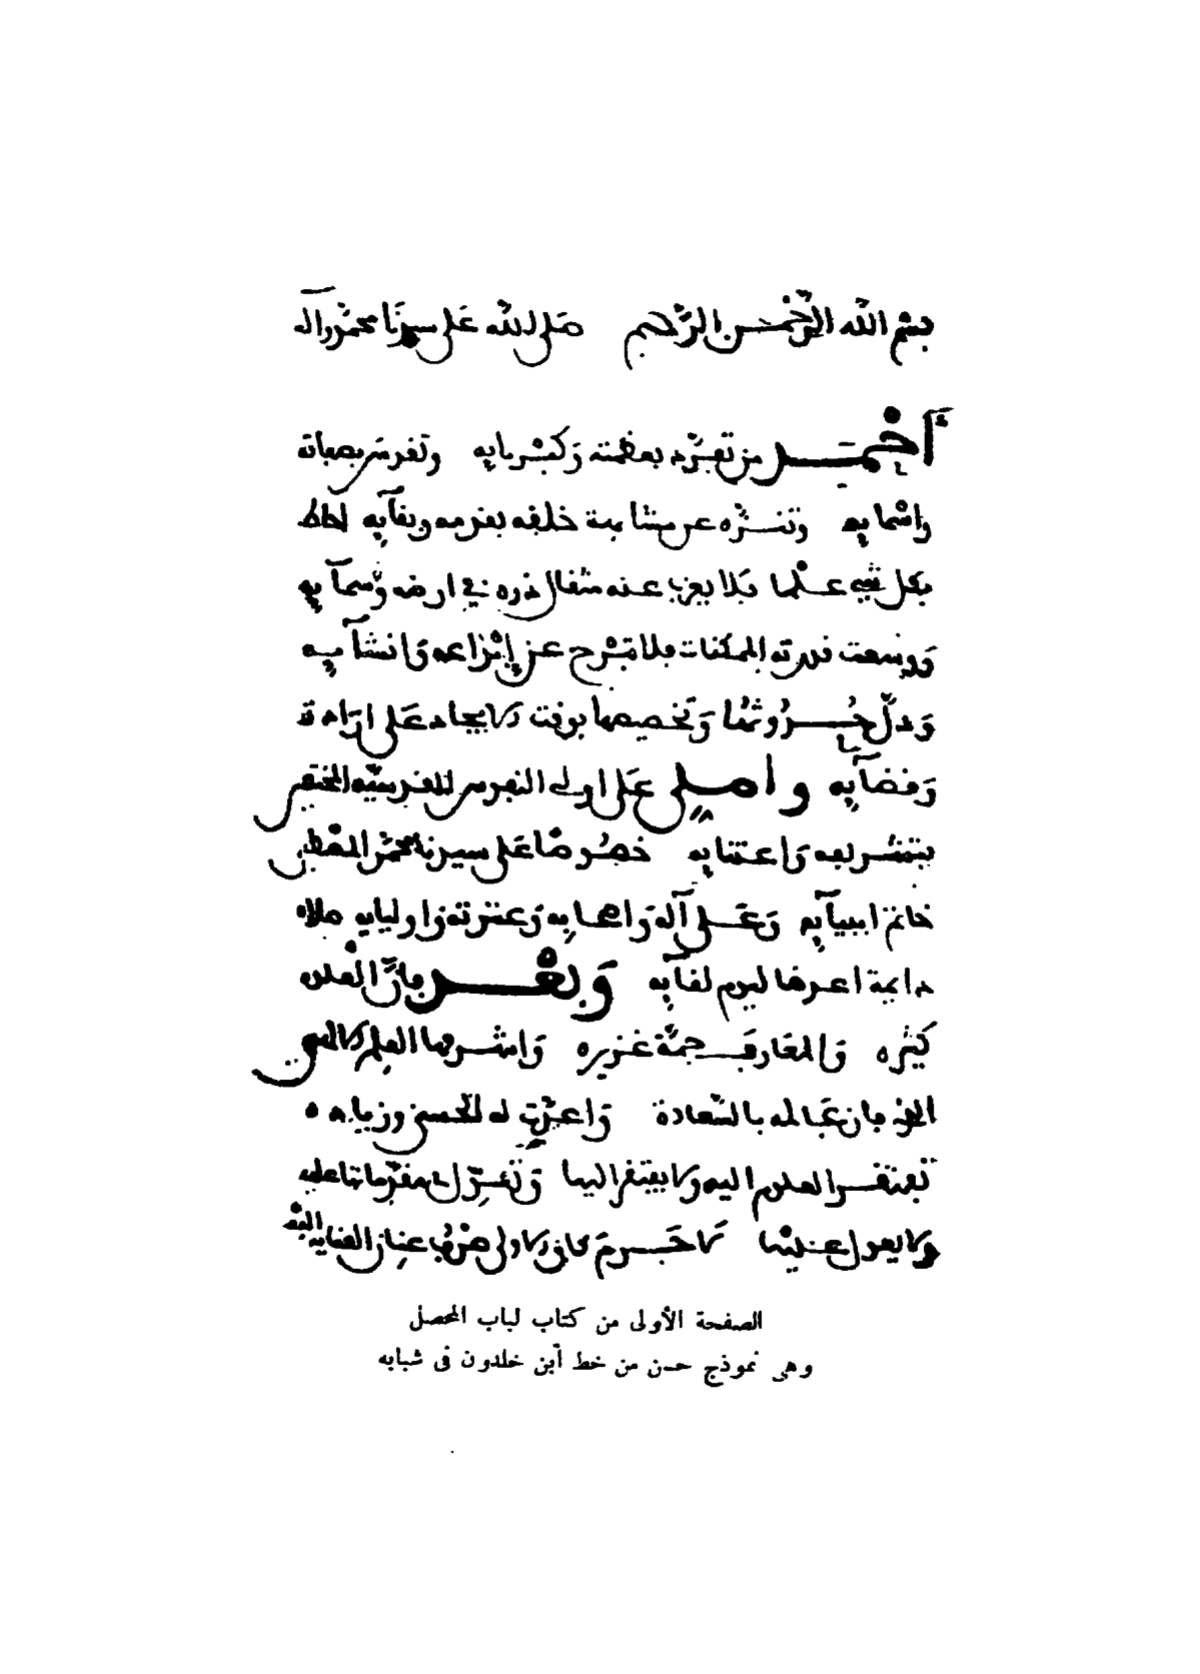 بسم الله الرحمن الرحيم صلى الله على سيدنا محمد وآله
أحمد من تفرد بعظمته وكبريايه وتقدس بصفاته
واسمايه وتنزه عن مشابهة خلقه بقدمه وبقآيه أحاط
بكل شيء علما فلا يعزب عنه مثقال ذرة في ارضه وسمآيه
ووسعت قدرته الممكنات فلا تبرح عن إبداعه وانشآيه
ودل حدوثها وتخصيصها بوقت الايجاد على ارادته
وقضآيه واصلي على اولى النفوس القدسية المختص
بتشريعه واعتنايه خصوصا على سيدنا محمد المصطفى
خاتم انبيآيه وعلى آله واصحابه وعترته واوليايه صلاة
دايمة اعدها ليوم لقآيه وبعد فان العلوم
كثيرة والمعارف جمة غزيرة واشرفها العلم الالهي
الذي فاز عالمه بالسعادة واعدت له الحسنى وزيادة
تفتقر العلوم اليه ولا يفتقر اليها وتعول مقدماتها عليه
ولا يعول عليها لا جرم كان الاولى صرف عنان العناية اليه
الصفحة الأولى من كتاب لباب المحصل
وهى نموذج حسن من خط ابن خلدون فى شبابه